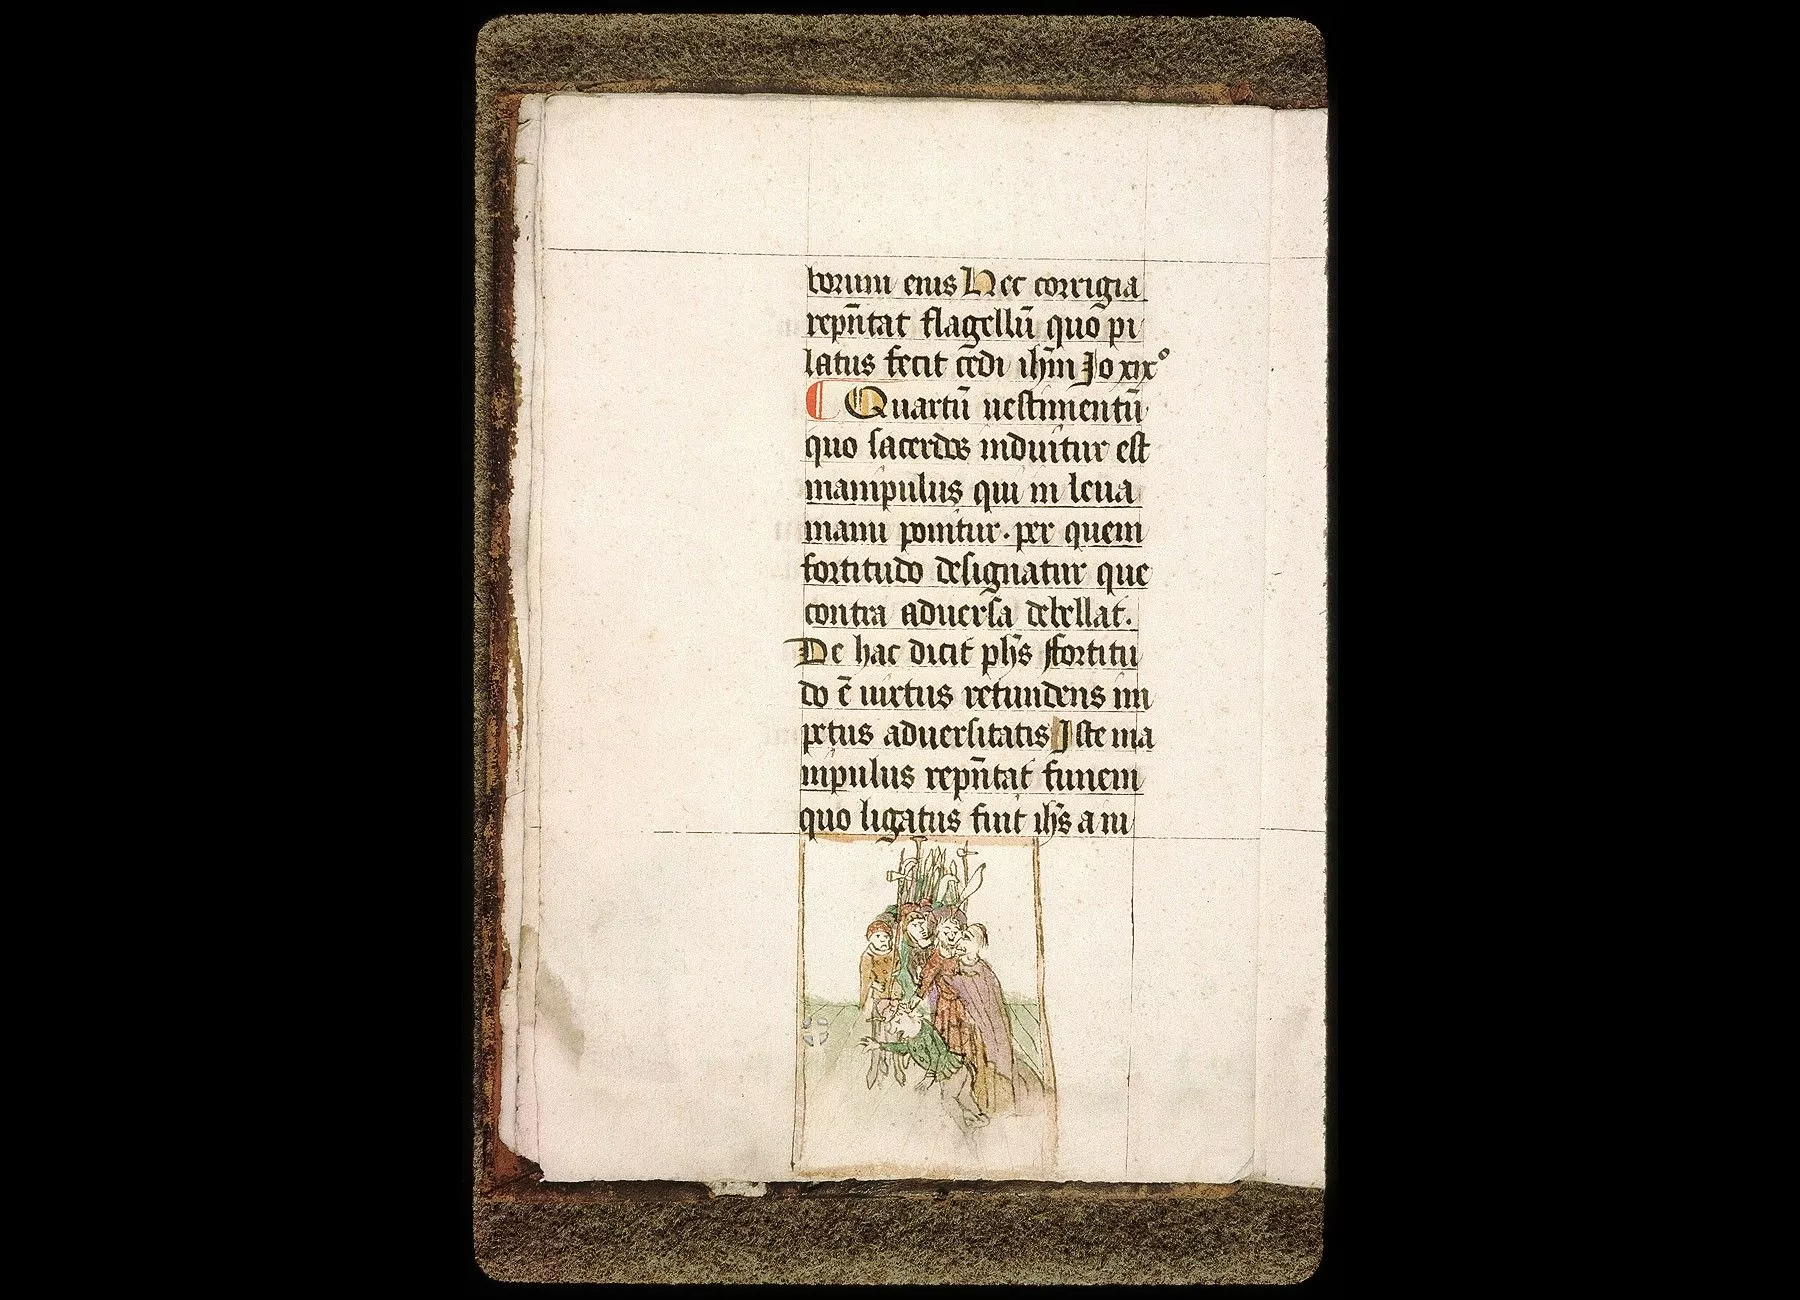 borum eius Hec corrigia
repn̄tat flagellū quo pi
latus fecit cedi ihm̄ Jo xix°
Quartū uestimentū
quo sacerdos induitur est
manipulus qui in leua
manu ponitur. per quem
fortitudo designatur que
contra aduersa debellat.
De hac dicit ph̄s ffortitu
do ē uirtus retundens im
petus aduersitatis Iste ma
nipulus repn̄tat funem
quo ligatus fuit ih̄s a iu